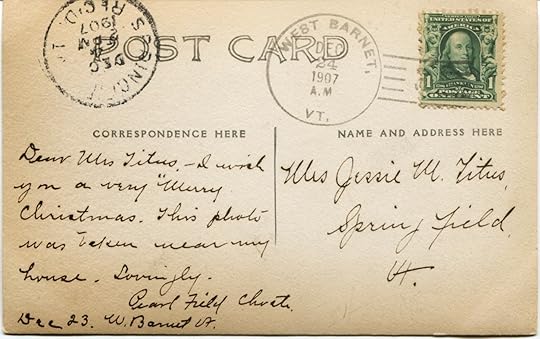 POST CARD
WEST BARNET,
DEC
24
1907
A.M
VT.
REC'D.
1907
PM
DEC
UNITED STATES OF
AMERICA
1
POSTAGE
ONE CENT
1
CORRESPONDENCE HERE
Dear Mrs Titus, - I wish
you a very "Merry
Christmas. This photo
was taken near my
house. Lovingly.
Pearl Field Choate
Dec 23. W. Barnet Vt.
NAME AND ADDRESS HERE
Mrs Jessie M. Titus,
Springfield,
Vt.